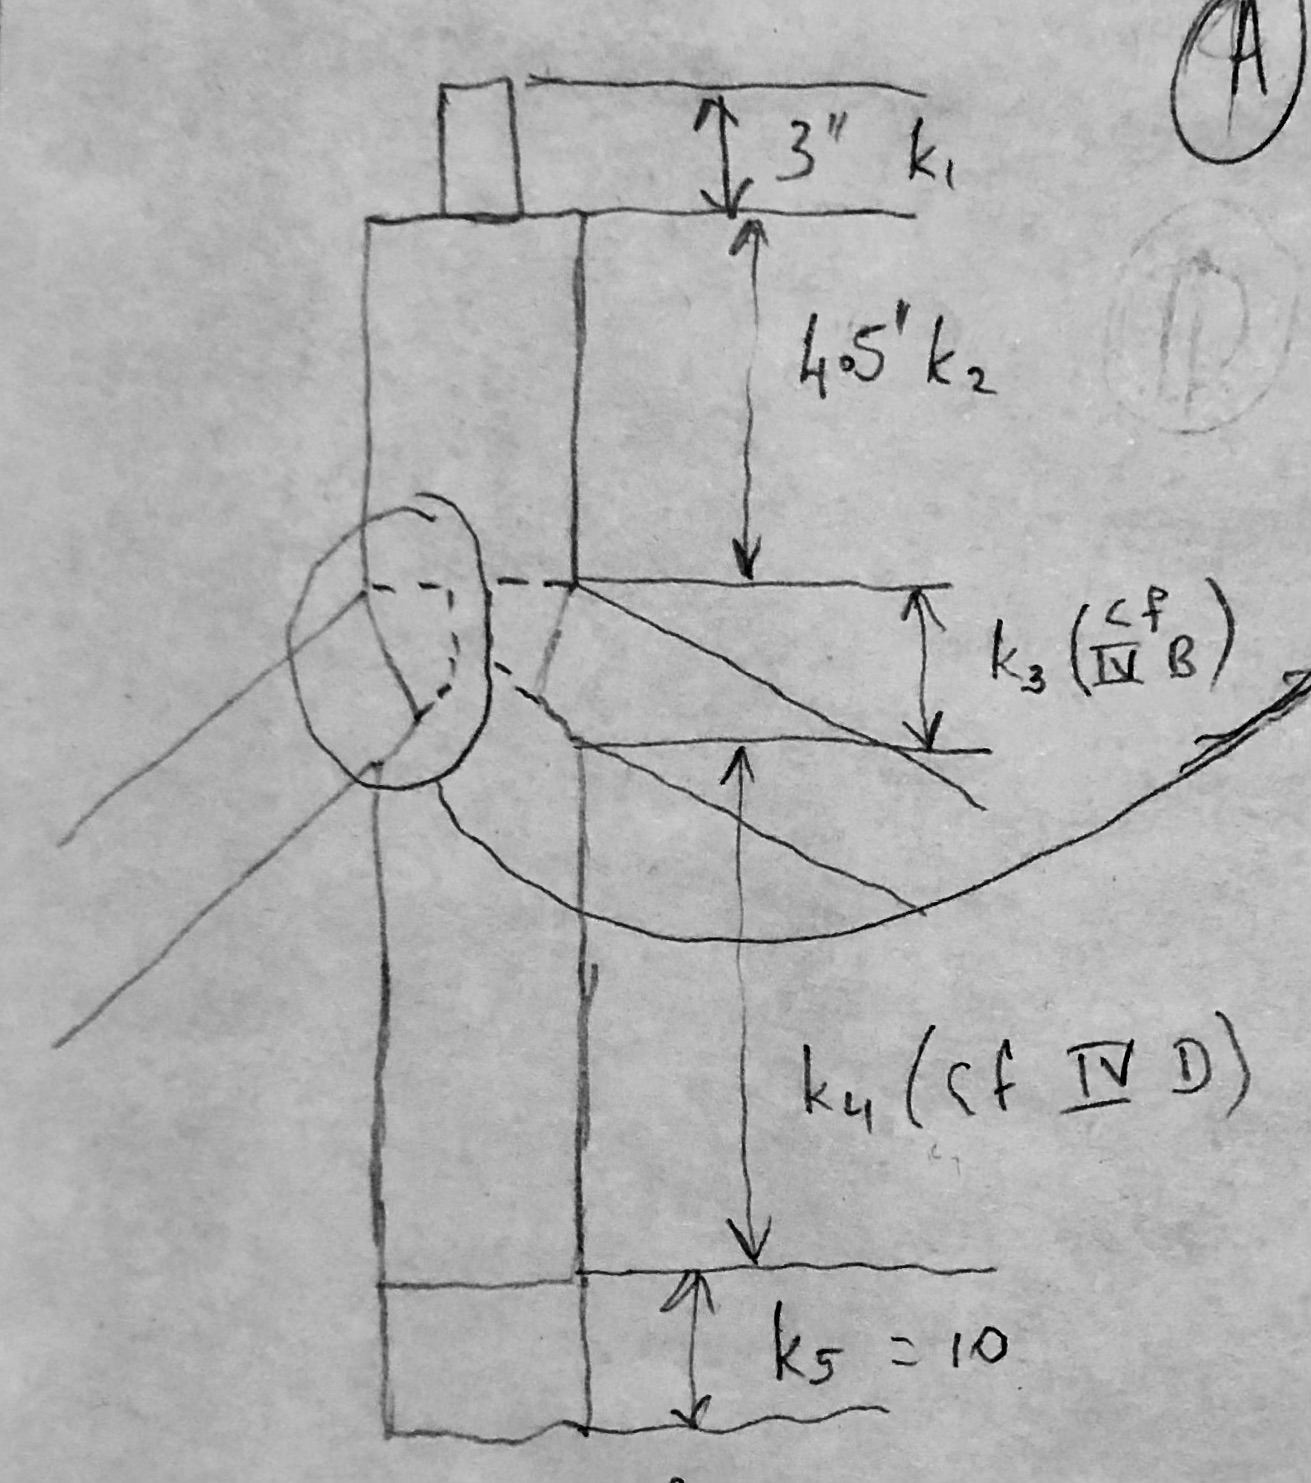 A
3" k₁
4.5' k₂
k₃ (cf
IV B)
k₄ (cf IV D)
k₅ = 10